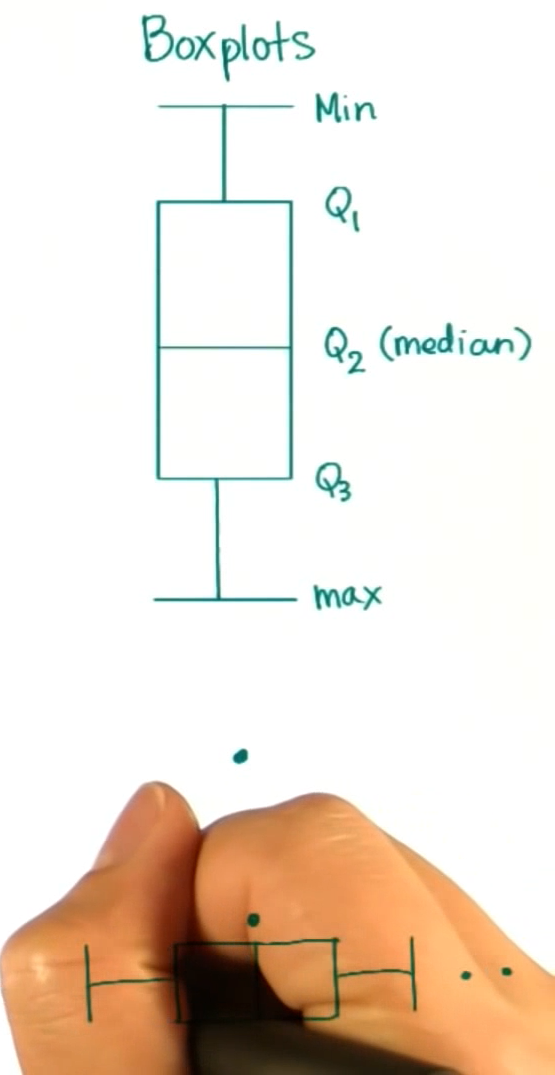 Boxplots
Min
Q₁
Q₂ (median)
Q₃
max